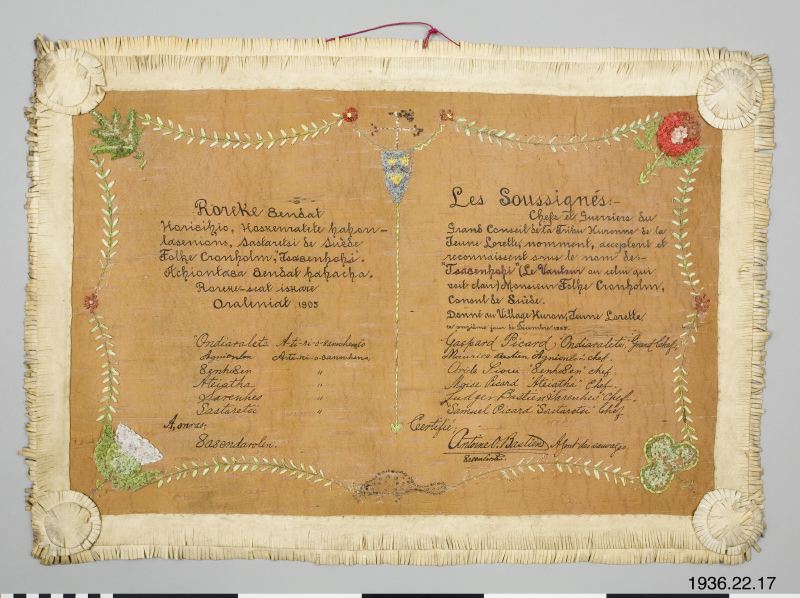 Roreke Sendat
Haricihio, Haskenratete hahon-
lasenions, Sastaretsi de Suède
Folke Cronholm, "Tsasenhohi.
Achiontasa Sendat hahacha.
Roreke-scat iskare
Orateniat 1905
Ondiaralete A-te-ri-o
Agnionlen
Eenhoen "
Ateiatha "
Sarenhes "
Sastaretsi "
A, onras,
Sasondarolen.
Les Soussignés:-
Chefs et Guerriers du
Grand Conseil de la Tribu Huronne de la
Jeune Lorette, nomment, acceptent et
reconnaissent sous le nom de:-
"Tsasenhohi" (Le Vautour ou celui qui
voit clair) Monsieur Folke Cronholm,
Consul de Suède.
Donné au Village Huron, Jeune Lorette
ce onzième jour de Décembre 1905.
Gaspard Picard "Ondiaralete" Grand Chef,
Maurice Bastien "Agnionlen" chef.
Oride Sioui "Eenhoen" chef.
Moise Picard "Ateiatha" Chef.
Ludger Bastien "Sarenhes" Chef.
Samuel Picard "Sastaretsi" Chef
Certifié;
Antoine O. Bastien Agent des sauvages.
1936.22.17